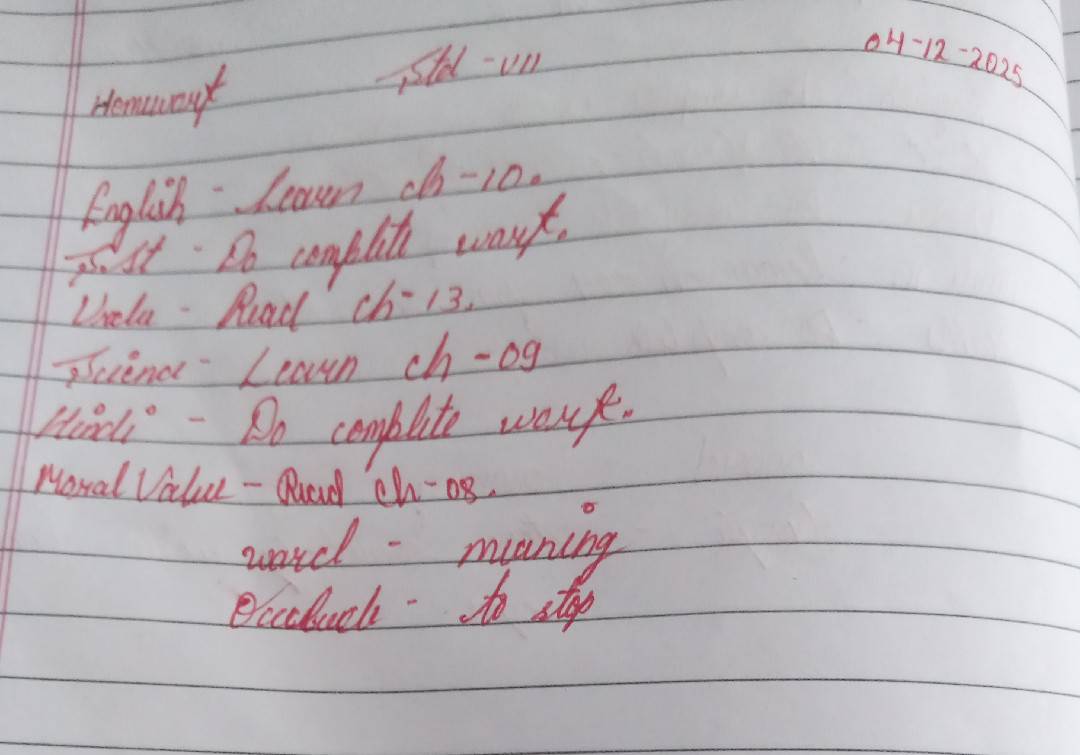 Homework Std - VII 04-12-2025
English - Learn ch-10.
S.St - Do complete work.
Urdu - Read ch-13.
Science - Learn ch-09
Hindi - Do complete work.
Moral Value - Read ch-08.
word - meaning
Occlude - to stop